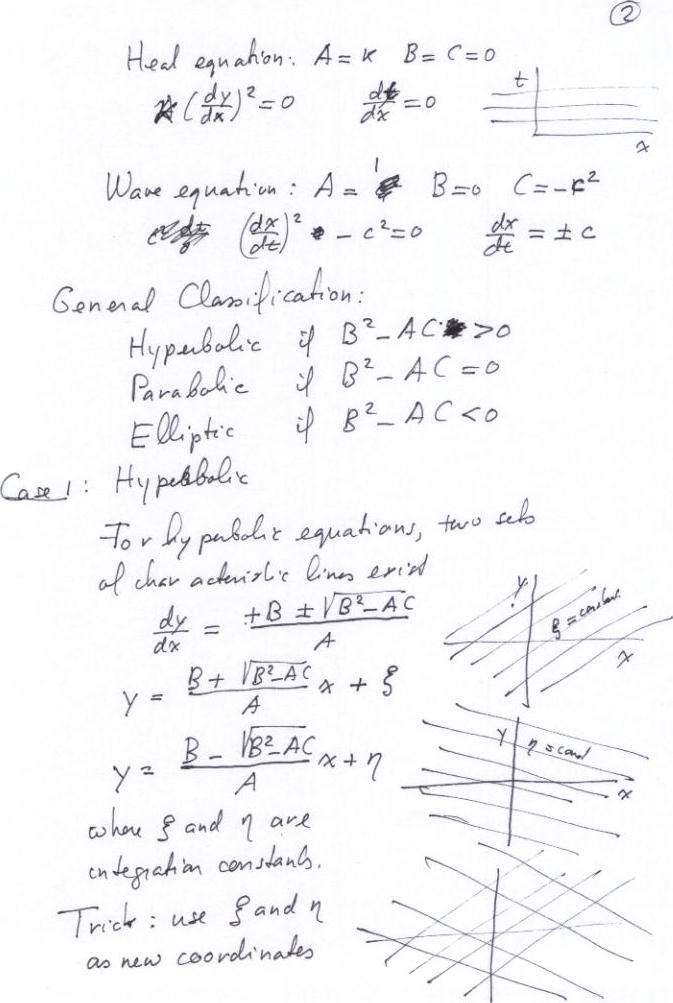 2
Heat equation: A = κ B = C = 0
(dy/dx)² = 0 dt/dx = 0
t
x
Wave equation: A = 1 B = 0 C = -c²
(dx/dt)² - c² = 0 dx/dt = ± c
General Classification:
Hyperbolic if B² - AC > 0
Parabolic if B² - AC = 0
Elliptic if B² - AC < 0
Case 1: Hyperbolic
For hyperbolic equations, two sets
of characteristic lines exist
dy/dx = (+B ± √(B² - AC))/A
y
ξ = constant
x
y = (B + √(B² - AC))/A x + ξ
y = (B - √(B² - AC))/A x + η
y
η = const
x
where ξ and η are
integration constants.
Trick: use ξ and η
as new coordinates